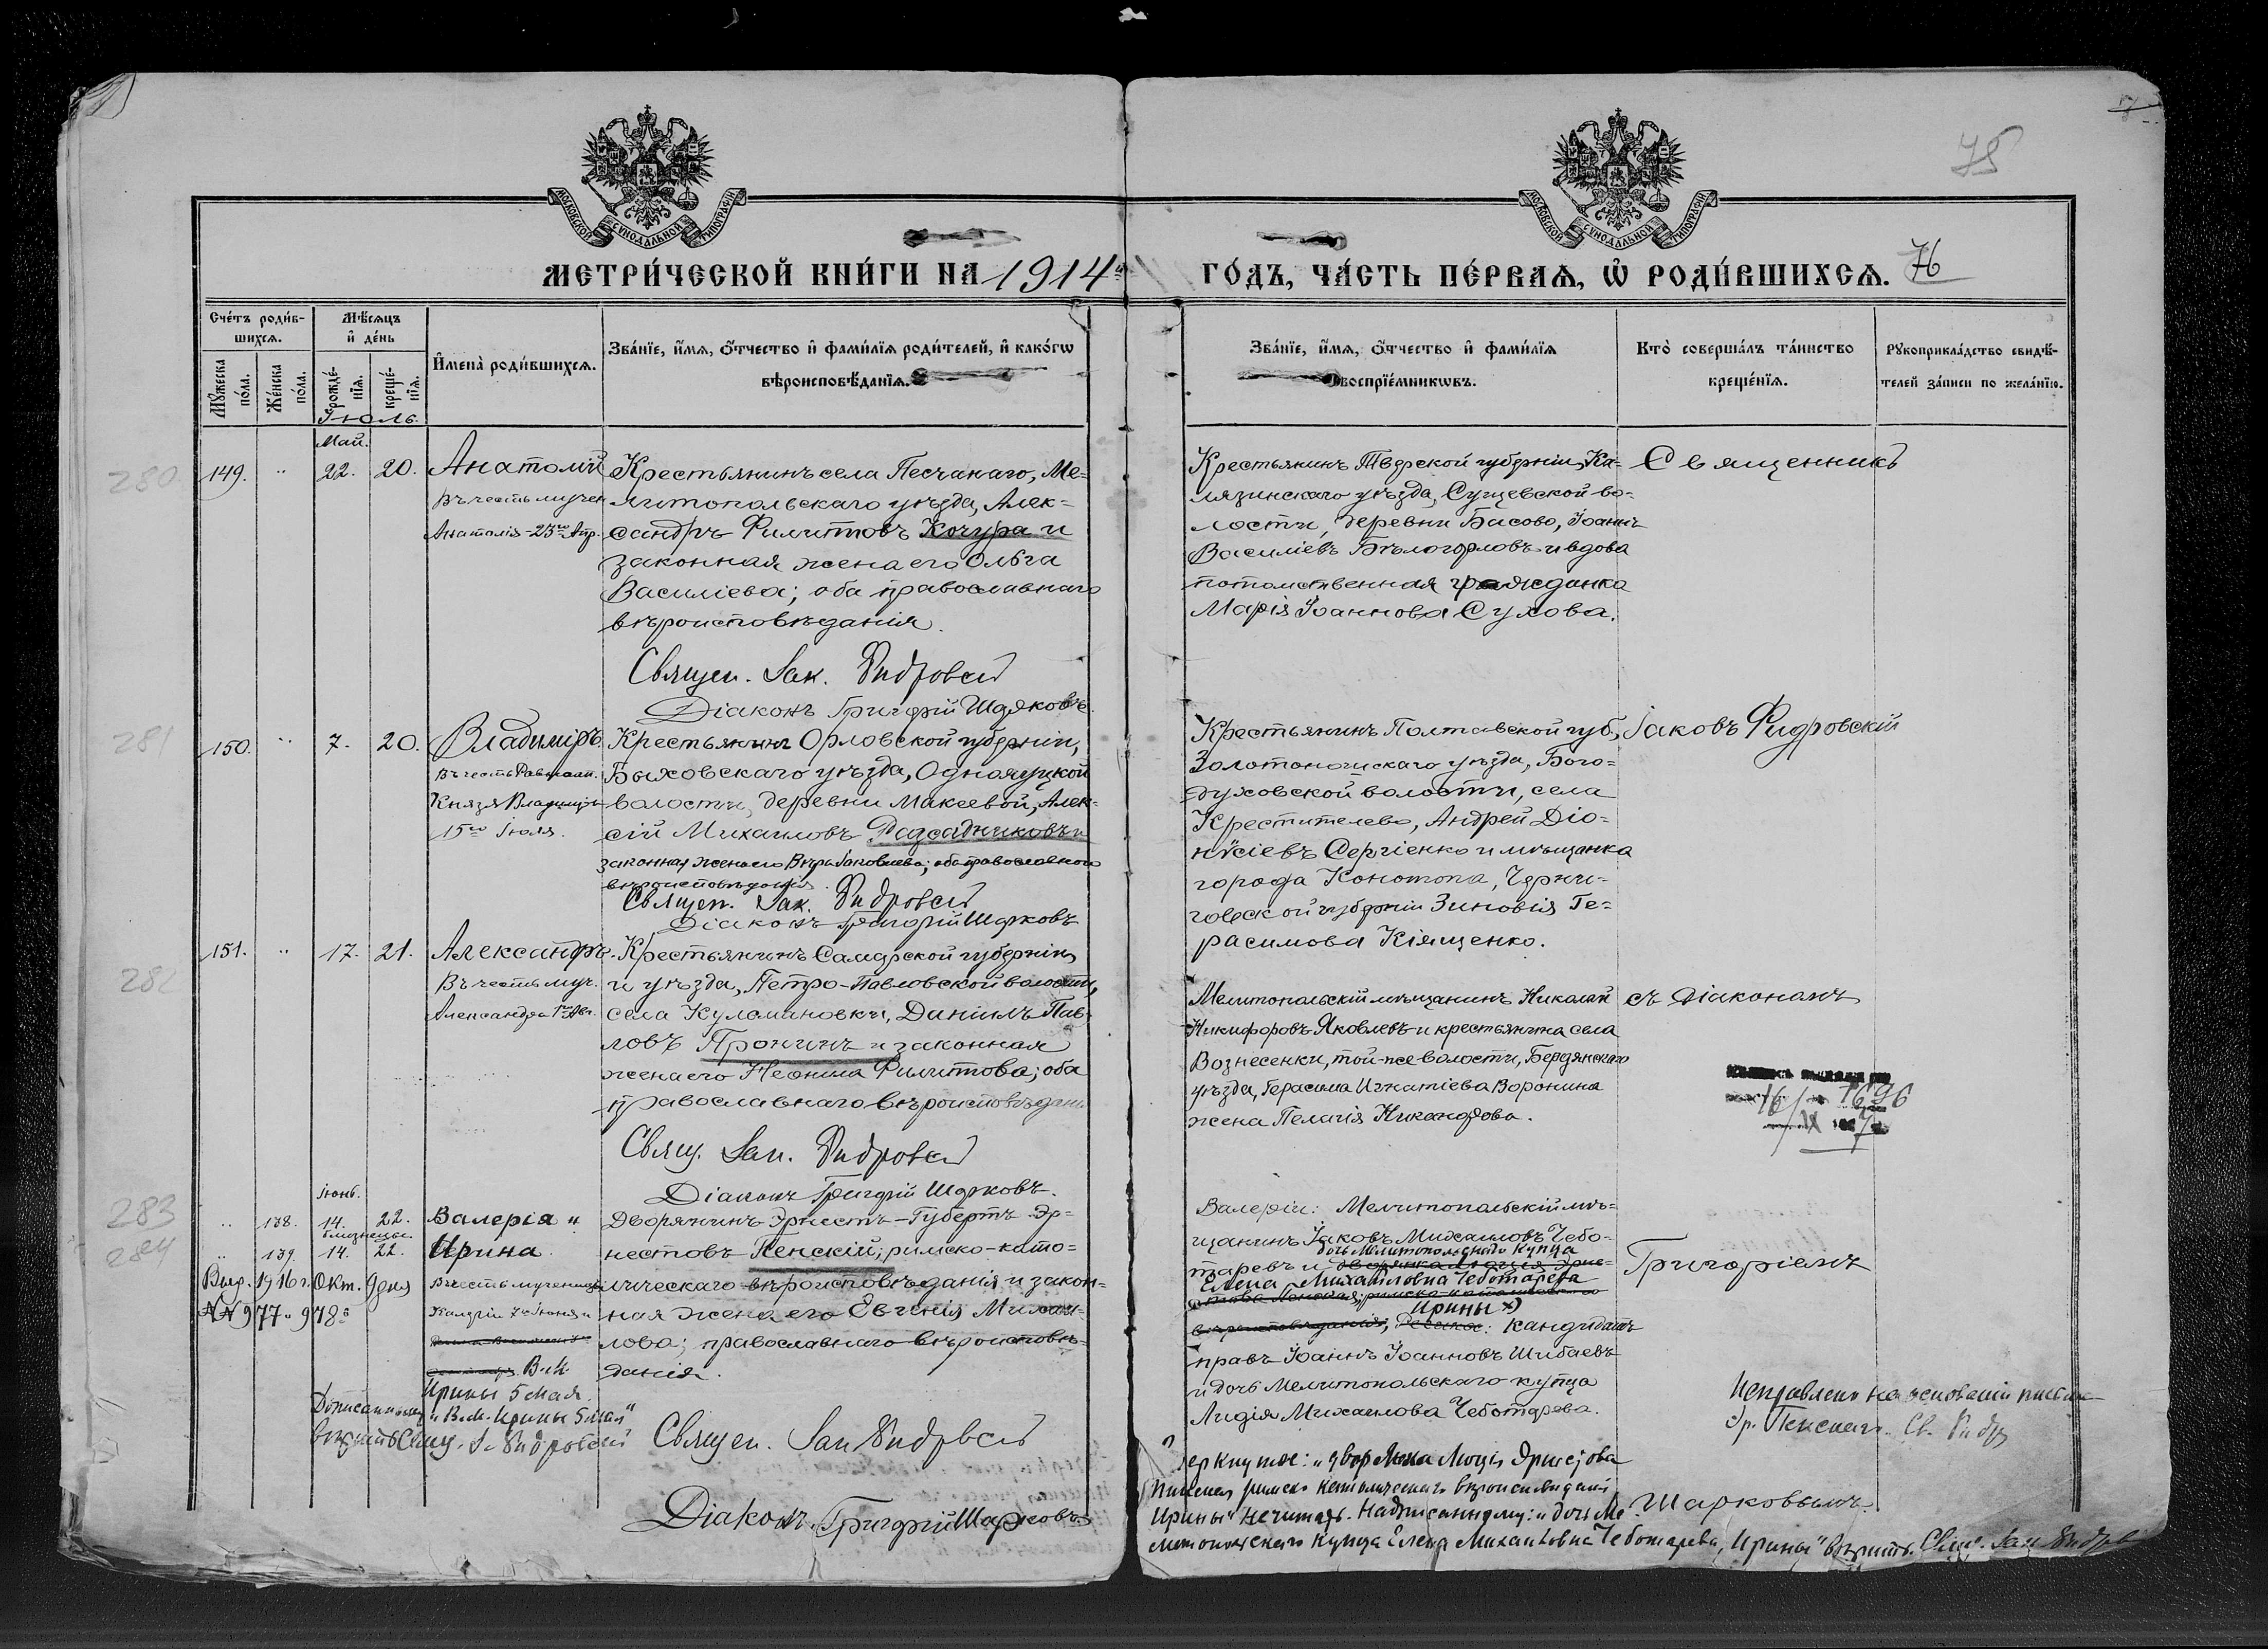 75
МОСКОВСКОЙ СУНОДАЛЬНОЙ ТИПОГРАФІИ
МОСКОВСКОЙ СУНОДАЛЬНОЙ ТИПОГРАФІИ
МЕТРИ́ЧЕСКОЙ КНИ́ГИ НА 1914й ГО́ДЪ, ЧА́СТЬ ПЕ́РВАѦ, Ѽ РОДИ́ВШИХСѦ. 76
Сче́тъ роди́в-
шихсѧ.
Мꙋжеска по́ла.
Же́нска по́ла.
Мѣ́сѧцъ
и҆ де́нь
рожде́-
нїѧ.
креще́-
нїѧ.
И҆мена̀ роди́вшихсѧ.
Зва́нїе, и҆́мѧ, ѻ҆́тчество и҆ фами́лїѧ роди́телей, и҆ како́гѡ
вѣроисповѣ́данїѧ.
Зва́нїе, и҆́мѧ, ѻ҆́тчество и҆ фами́лїѧ
воспрїе́мникѡвъ.
Кто̀ соверша́лъ та́инство
креще́нїѧ.
Рꙋкоприкла́дство свидѣ́-
телей за́писи по жела́нїю.
Іюль.
Май.
280
149. " 22. 20. Анатолій
Въ честь мучен.
Анатолія - 23го Апр.
Крестьянинъ села Песчанаго, Ме-
литопольскаго уѣзда, Алек-
сандръ Филипповъ Кочура и
законная жена его Ольга
Василіева; оба православнаго
вѣроисповѣданія.
Священ. Іак. Фидровскій
Діаконъ Григорій Шарковъ.
Крестьянинъ Тверской губерніи, Ка-
лязинскаго уѣзда, Сущевской во-
лости, деревни Басово, Іоаннъ
Василіевъ Бѣлогорловъ и вдова
потомственная гражданка
Марія Іоаннова Сухова.
Священникъ
281
150. " 7. 20. Владиміръ
Въ честь Равноап.
Князя Владиміра
15го Іюля.
Крестьянинъ Орловской губерніи,
Волховскаго уѣзда, Однолуцкой
волости, деревни Макеевой, Алек-
сій Михаиловъ Разсадниковъ и
законная жена его Вѣра Іаковлева; оба православнаго
вѣроисповѣданія.
Священ. Іак. Фидровскій
Діаконъ Григорій Шарковъ
Крестьянинъ Полтавской губ.,
Золотоношскаго уѣзда, Бого-
духовской волости, села
Крестителево, Андрей Діо-
нѵсіевъ Сергіенко и мѣщанка
города Конотопа, Черни-
говской губерніи Зиновія Ге-
расимова Кіященко.
Іаковъ Фидровскій
282
151. " 17. 21. Александръ.
Въ честь муч.
Александра 1го Авг.
Крестьянинъ Самарской губерніи
и уѣзда, Петро-Павловской волости,
села Куломановки, Даніилъ Пав-
ловъ Пронинъ и законная
жена его Неонила Филиппова; оба
православнаго вѣроисповѣдан.
Свящ. Іак. Фидровскій
Діаконъ Григорій Шарковъ.
Мелитопольскій мѣщанинъ Николай
Никифоровъ Яковлевъ и крестьянина села
Вознесенки, той-же волости, Бердянскаго
уѣзда, Герасима Игнатіева Воронина
жена Пелагія Никандрова.
съ діакономъ
16/IX
1696
Іюнь.
283
" 138. 14. 22. Валерія "
близнецы.
284
" 139. 14. 22. Ирина
Выд. 1916 г. Окт. 9 дня
№№ 977 и 978
Въ честь мученицъ
Валеріи 7го Іюня и
В.М.
Ирины 5 мая.
Дописанному "В.М. Ирины 5 мая"
вѣрить Свящ. І. Фидровскій
Дворянинъ Эрнестъ-Губертъ Эр-
нестовъ Пенскій; римско-като-
лическаго вѣроисповѣданія и закон-
ная жена его Евгенія Михаи-
лова; православнаго вѣроисповѣ-
данія.
Священ. Іак. Фидровскій
Діаконъ Григорій Шарковъ
Валеріи: Мелитопольскій мѣ-
щанинъ Іаковъ Михаиловъ Чебо-
дочь Мелитопольскаго купца
таревъ и дворянка Люція Эрне-
Елена Михаиловна Чеботарева
стова Пенская; римско-католическаго
Ирины ×)
вѣроисповѣданія; : кандидатъ
правъ Іоаннъ Іоанновъ Шибаевъ
и дочь Мелитопольскаго купца
Лидія Михаилова Чеботарева.
Григоріемъ
Исправлено на основаніи письма
Эр. Пенскаго. Св. Фидр
"дворянка Люція Эрнестова
Пенская римско католическаго вѣроисповѣданія
Ирины" не читать. Надписанному: "дочь Ме-
Шарковымъ.
литопольскаго купца Елена Михаиловна Чеботарева, Ирины" вѣрить. Свящ. Іак Фидров